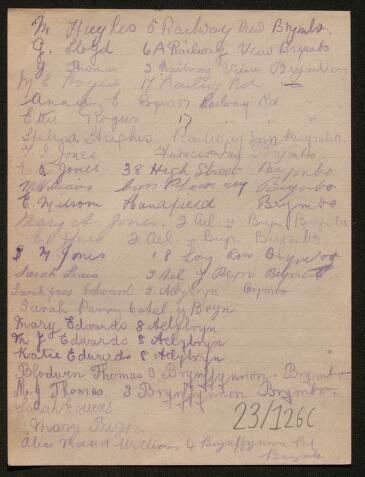 M Hughes 5 Railway View Brymbo.
G. Lloyd 6A Railway View Brymbo
J Thomas 3 Railway View Brymbo
M E Rogers 17 Railway Rd
Annie E Rogers 17 Railway Rd
Rogers 17 " "
Hughes, Railway Inn Brymbo.
Jones Furnace Inn Brymbo.
Jones 38 High Street Brymbo
Williams Brymbo.
E. Wilson Brymbo
Mary A. Jones. 2 Ael y Bryn Brymbo
Jones 2 Ael y Bryn Brymbo.
M Jones 18 Long Row
Sarah 3 Ael y Bryn
Sarah Jane Edwards 5 Aelybryn Brymbo
Sarah Parry 6 Ael. y Bryn
Mary Edwards 8 Aelybryn
M J Edwards 8 Aelybryn
Katie Edwards 8 Aelybryn
Blodwen Thomas 3 Brynffynnon. Brymbo
M. J Thomas. 3 Brynffynnon Brymbo.
Sarah
Mary Pugh
23/126C
Alice Maud Williams 4 Brynffynnon Rd
Brymbo